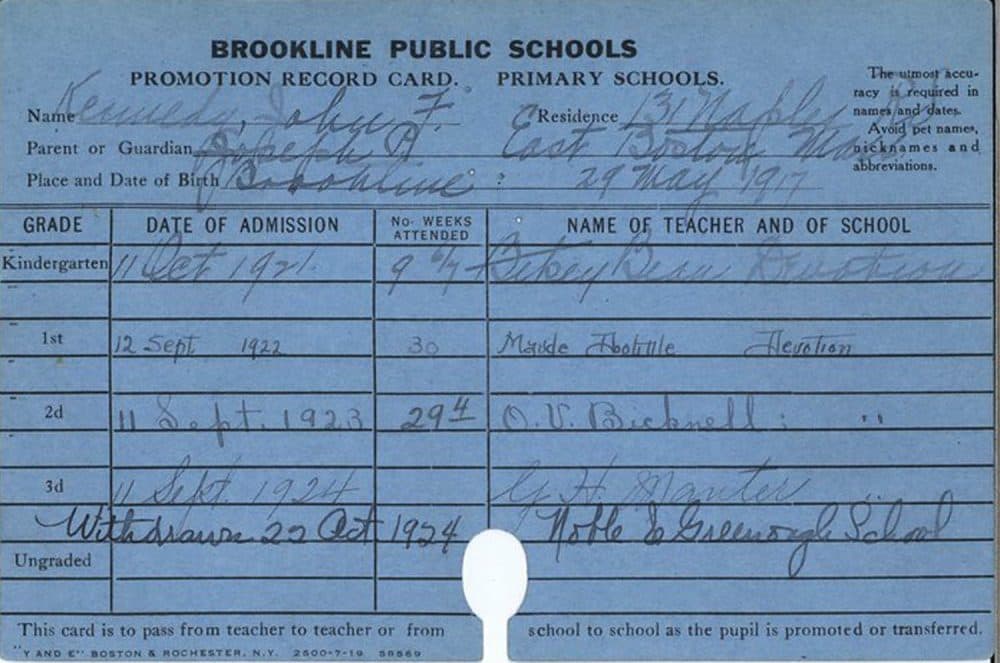 BROOKLINE PUBLIC SCHOOLS
PROMOTION RECORD CARD. PRIMARY SCHOOLS.
The utmost accu-
racy is required in
names and dates.
Avoid pet names,
nicknames and
abbreviations.
Name Kennedy, John F. Residence 131 Naples Rd
Parent or Guardian Joseph P East Boston Mass
Place and Date of Birth Brookline : 29 May 1917
GRADE DATE OF ADMISSION No. WEEKS ATTENDED NAME OF TEACHER AND OF SCHOOL
Kindergarten 11 Oct 1921 9 6/7 Bean Devotion
1st 12 Sept 1922 30 Maude Devotion
2d 11 Sept. 1923 29 4 O. V. Bicknell : "
3d 11 Sept. 1924 G. H. Manter "
Withdrawn 22 Oct 1924 Noble & Greenough School
Ungraded
This card is to pass from teacher to teacher or from school to school as the pupil is promoted or transferred.
"Y AND E" BOSTON & ROCHESTER, N.Y. 2500-7-19 58569